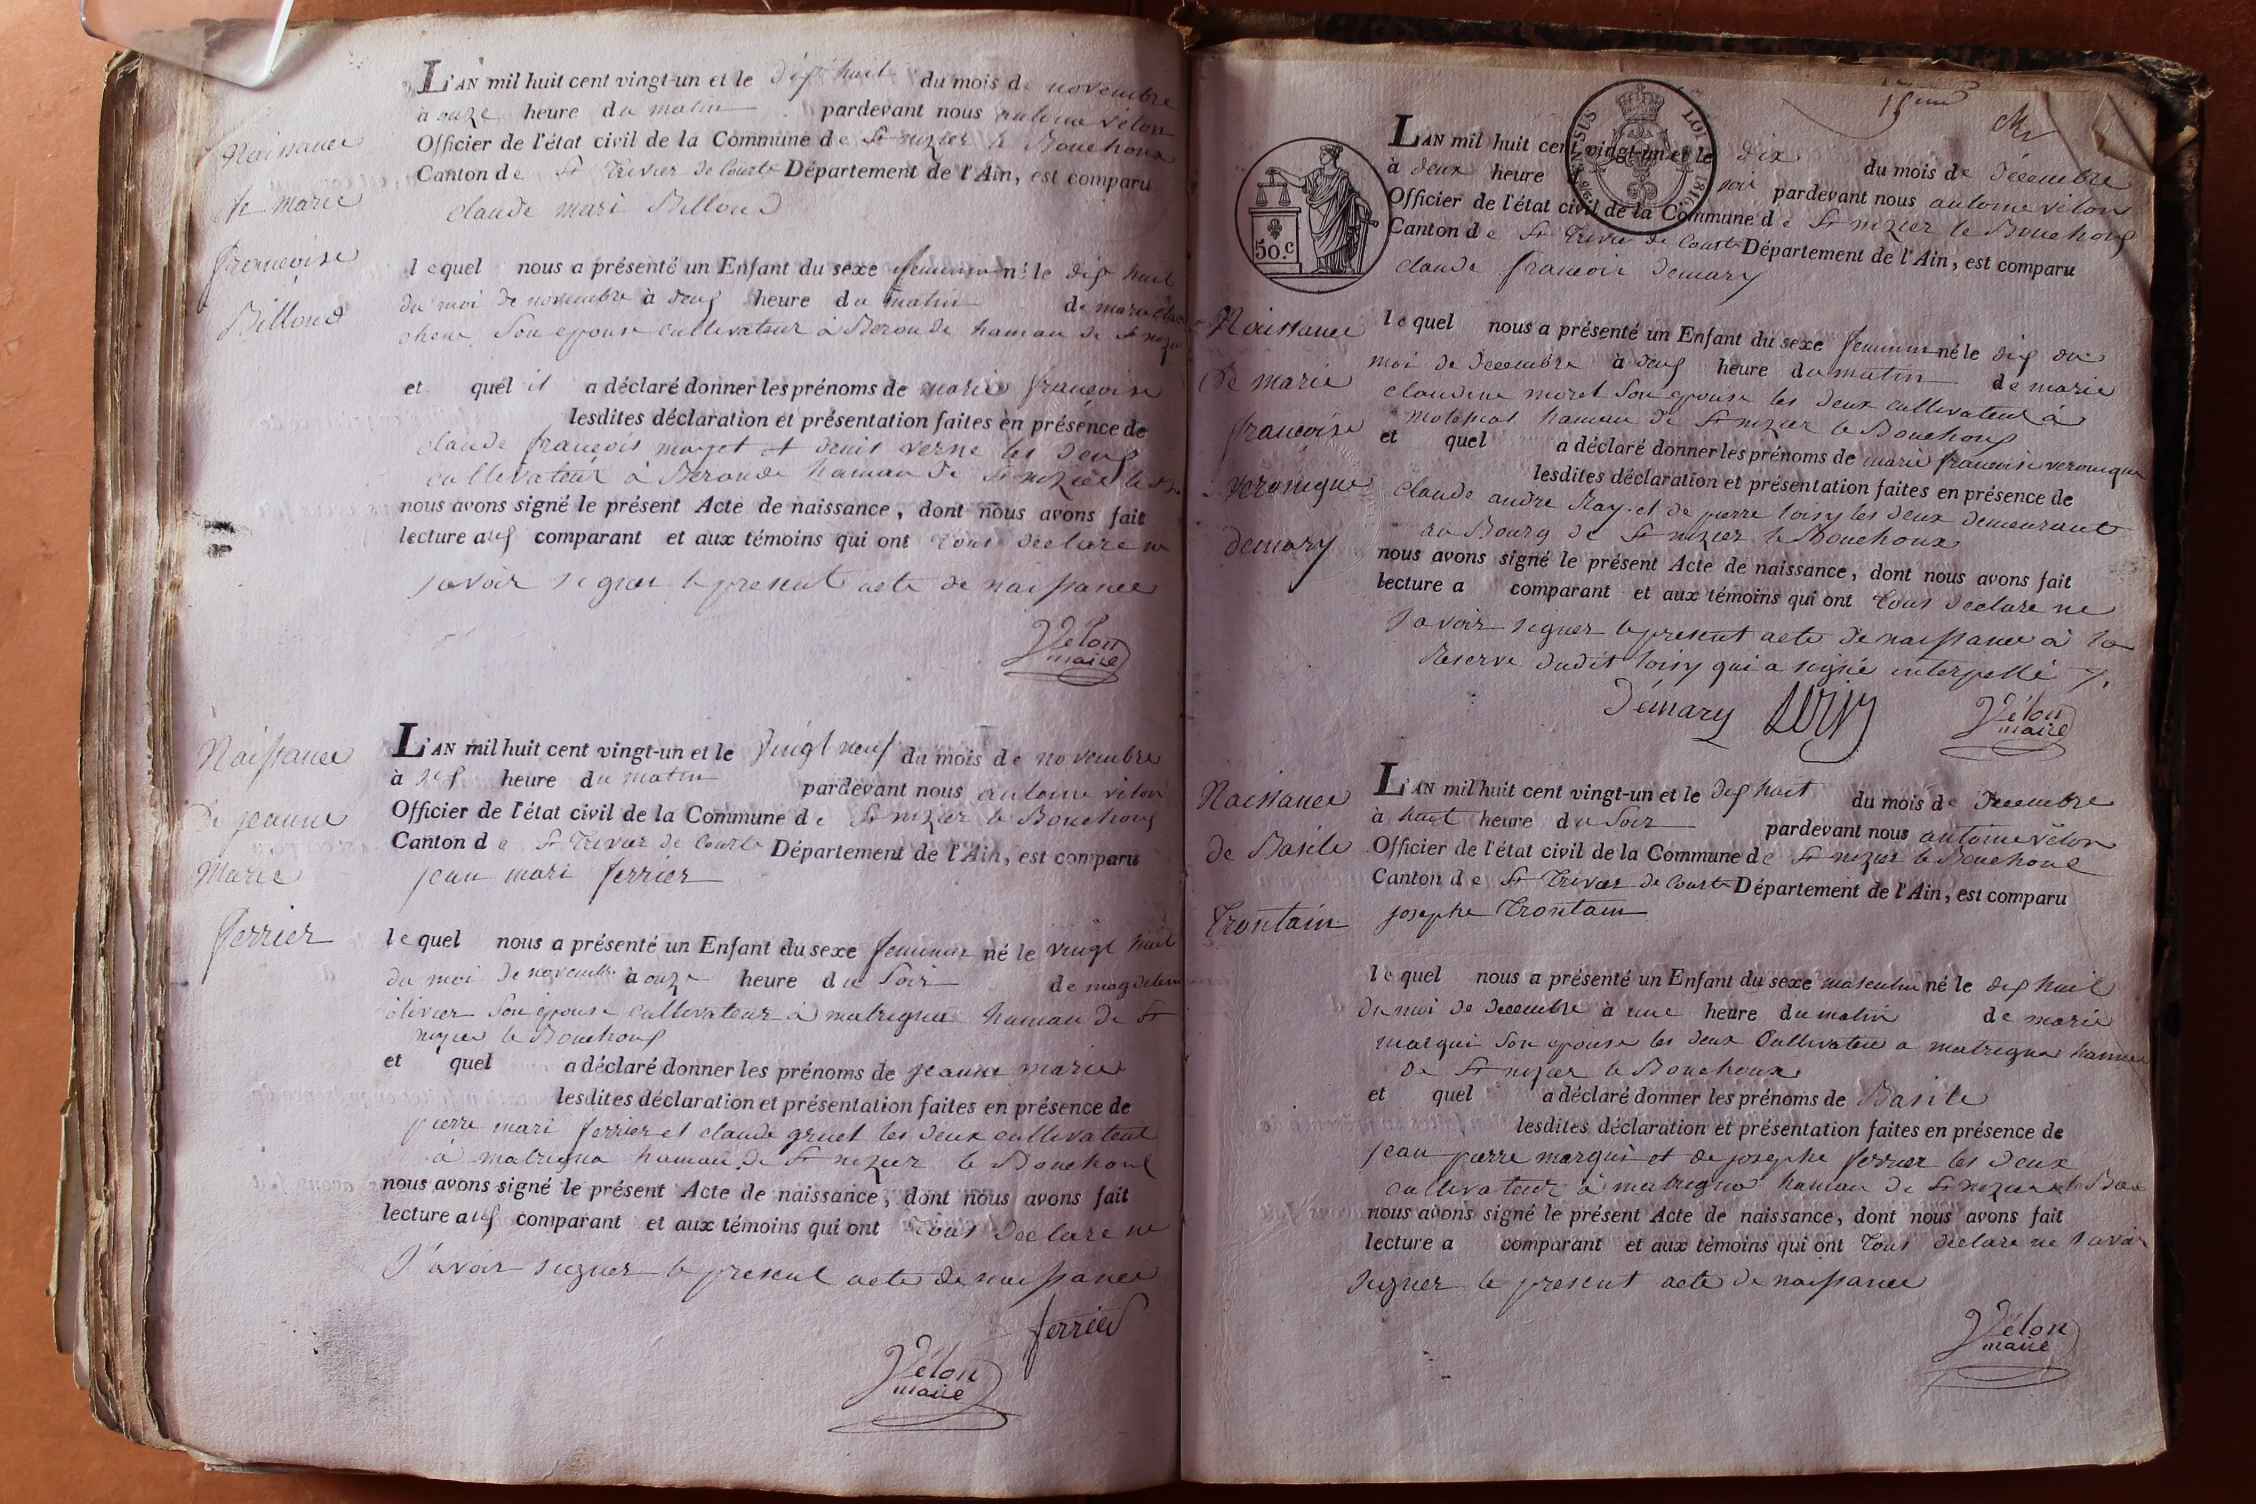 Naissance
de marie
francoise
Billoud
L'AN mil huit cent vingt-un et le dix huit du mois de novembre
à onze heure du matin pardevant nous antoine vélon
Officier de l'état civil de la Commune de St nizier le Bouchoux
Canton de St Trivier de Courte Département de l'Ain, est comparu
claude mari Billoud
lequel nous a présenté un Enfant du sexe feminin né le dix huit
du moi de novembre à deux heure du matin de marie
son epouse cultivateur à Beronde hamau de St nizier
et quel il a déclaré donner les prénoms de marie francoise
lesdites déclaration et présentation faites en présence de
claude françois et denis verne les deux
cultivateur à Beronde hamau de St nizier le
nous avons signé le présent Acte de naissance, dont nous avons fait
lecture aux comparant et aux témoins qui ont tous declare ne
savoir signer le present acte de naissance
Vélon
maire
Naissance
de jeanne
Marie
ferrier
L'AN mil huit cent vingt-un et le vingt neuf du mois de novembre
à heure du matin pardevant nous antoine vélon
Officier de l'état civil de la Commune de St nizier le Bouchoux
Canton de St Trivier de Courte Département de l'Ain, est comparu
jean mari ferrier
lequel nous a présenté un Enfant du sexe feminin né le vingt huit
du moi de novembre à onze heure du soir de magdelene
olivier son epouse cultivateur à matrigna hamau de St
nizier le Bouchoux
et quel a déclaré donner les prénoms de jeanne marie
lesdites déclaration et présentation faites en présence de
pierre mari ferrier et claude gruet les deux cultivateur
à matrigna hamau de St nizier le Bouchoux
nous avons signé le présent Acte de naissance, dont nous avons fait
lecture aux comparant et aux témoins qui ont tous declare ne
savoir signer le present acte de naissance
ferrier
Vélon
maire
15eme
CENSUS LOI 1816
50.c
Naissance
de marie
francoise
veronique
demary
L'AN mil huit cent vingt-un et le dix du mois de décembre
à deux heure soir pardevant nous antoine vélon
Officier de l'état civil de la Commune de St nizier le Bouchoux
Canton de St Trivier de Courte Département de l'Ain, est comparu
claude francois demary
lequel nous a présenté un Enfant du sexe feminin né le dix du
moi de decembre à deux heure du matin de marie
claudine morel son epouse les deux cultivateur à
hamau de St nizier le Bouchoux
et quel a déclaré donner les prénoms de marie francoise veronique
lesdites déclaration et présentation faites en présence de
claude andre Ray et de pierre loisy les deux demeurant
au Bourg de St nizier le Bouchoux
nous avons signé le présent Acte de naissance, dont nous avons fait
lecture a comparant et aux témoins qui ont tous declare ne
savoir signer le present acte de naissance à la
reserve dudit loisy qui a signé interpellé
Démary Loisy
Vélon
maire
Naissance
de Basile
Trontain
L'AN mil huit cent vingt-un et le dix huit du mois de decembre
à huit heure du soir pardevant nous antoine vélon
Officier de l'état civil de la Commune de St nizier le Bouchoux
Canton de St Trivier de Courte Département de l'Ain, est comparu
josephe Trontain
lequel nous a présenté un Enfant du sexe masculin né le dix huit
du moi de decembre à une heure du matin de marie
marqui son epouse les deux Cultivateur a matrigna hamau
de St nizier le Bouchoux
et quel a déclaré donner les prénoms de Basile
lesdites déclaration et présentation faites en présence de
jean pierre marqui et de josephe ferrier les deux
cultivateur à matrigna hamau de St nizier le Bou
nous avons signé le présent Acte de naissance, dont nous avons fait
lecture a comparant et aux témoins qui ont tous declare ne savoir
signer le present acte de naissance
Vélon
maire